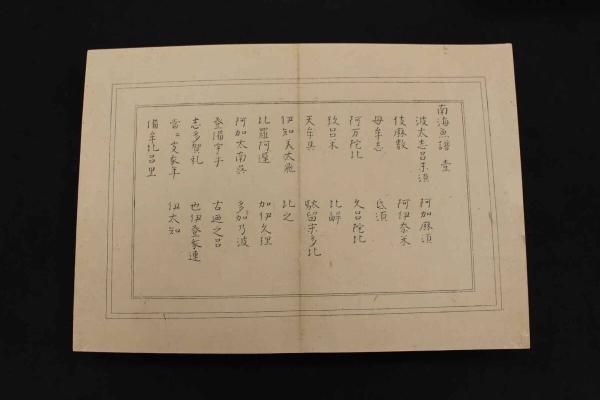 南海魚譜 壹
波太志呂未須 阿加麻須
伎麻数 阿伊奈米
毋牟志 氐須
阿万陀比 久呂陀比
玖呂木 比
天牟具 留末多比
伊知美太飛 比之
比羅阿遲 加伊久理
阿加太南 多加乃波
登備宇乎 古之呂
志多賀礼 也伊登家連
支家年 伊太知
備牟比呂里